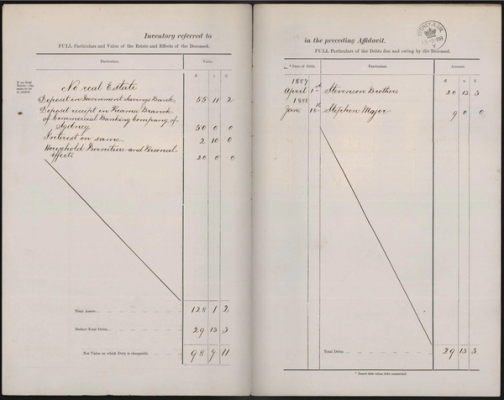 Inventory referred to
FULL Particulars and Value of the Estate and Effects of the Deceased.
Particulars. Value.
£ s. d.
No real Estate
Deposit in Government Savings Bank 55 11 2
Deposit receipt in Kiama Branch
of Commercial Banking Company of
Sydney 50 0 0
Interest on same 2 10 0
Household Furniture and Personal
effects 20 0 0
Total Assets 128 1 2
Deduct Total Debts 29 13 3
Net Value on which Duty is chargeable 98 7 11
in the preceding Affidavit.
FULL Particulars of the Debts due and owing by the Deceased.
No. * Date of Debt. Particulars. Amount.
£ s. d.
1887
April 1st Stevenson Brothers 20 13 3
1888
Jany Stephen Major 9 0 0
Total Debts 29 13 3
* Insert date when debt contracted.